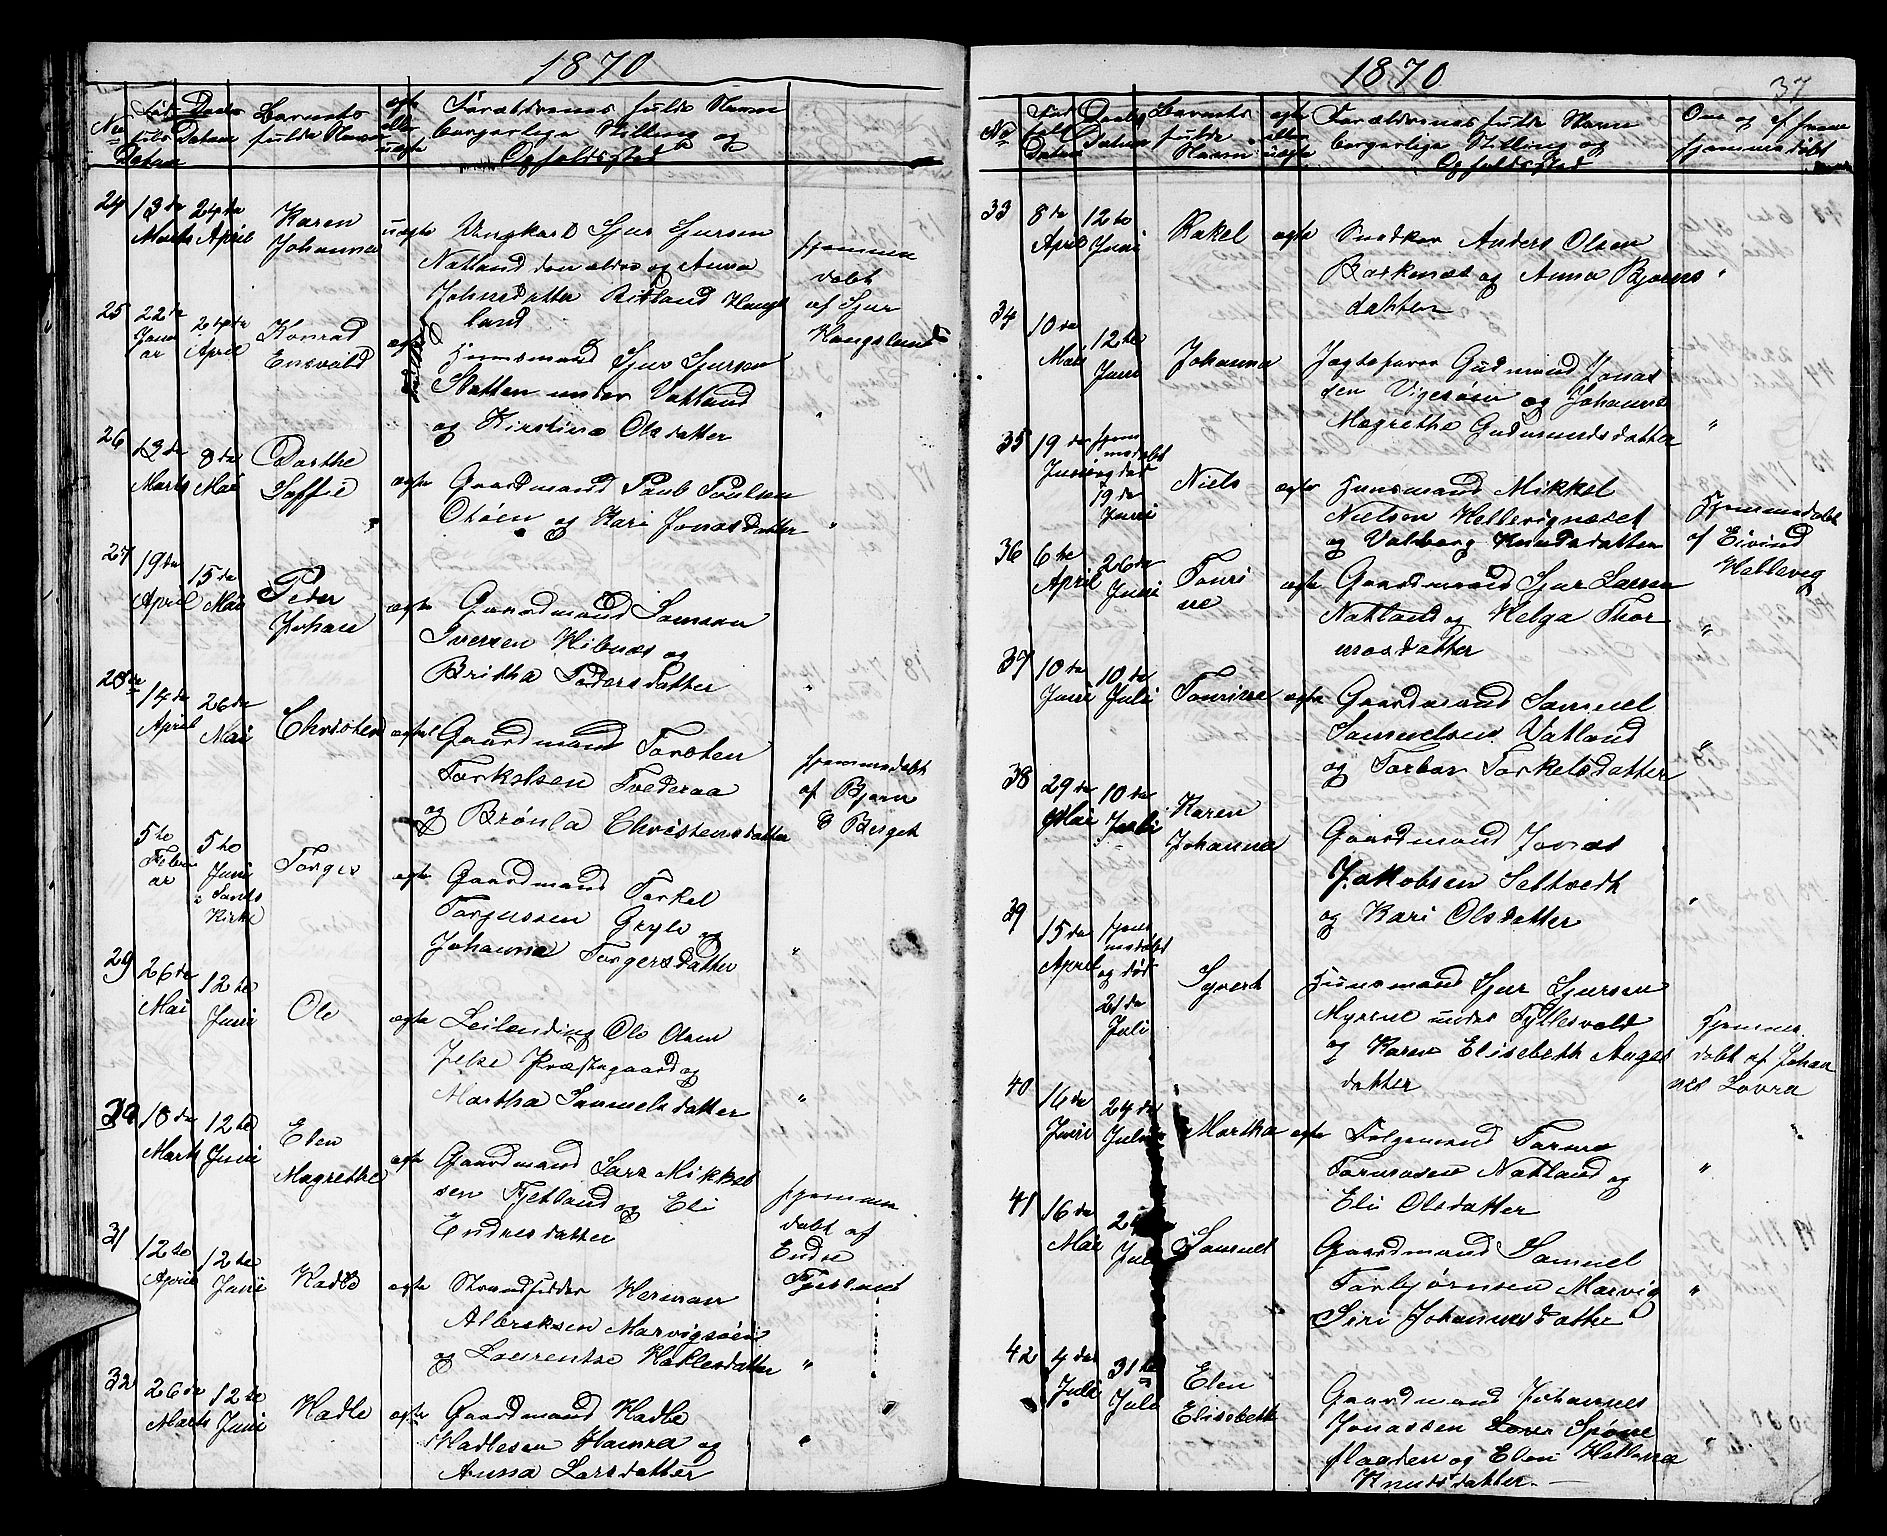 1870
No Fødselsdatum Daabs Datum Barnets fulde Navn ægte eller uægte Forældrenes fulde Navn borgerlige Stilling og Opholdssted
24 13de Marts 24de April Karen Johanna uægte Ungkarl Sjur Sjursen
Natland den ældre og Anna
Johnsdatter Birkland Haugs
land
hjemme
døbt
af Sjur
Haugsland
25 22de Januar 24de April Konrad Ensvald ægte Huusmand Sjur Sjursen
Skatten under Vatland
og Kirstine Olsdatter "
26 13de Marts 8de Mai Dorthe Soffie ægte Gaardmand Poul Poulsen
Otøen og Kari Jonasdatter "
27 19de April 15de Mai Peder Johan ægte Gaardmand Samson
Iversen Hibnes og
Britha Pedersdatter "
28de 14de April 26de Mai Christen ægte Gaardmand Torsten
Torkelsen Tvederaa
og Brønla Christensdatter
hjemmedøbt
af Bjørn
E Berget
5te Februar 5te Juni i Sands Kirke Torger ægte Gaardmand Torkel
Torgersen Gryle og
Johanna Torgersdatter "
29 26de Mai 12te Juni Ole ægte Leilending Ole Olsen
Jelse Præstegaard og
Martha Samuelsdatter "
30 18de Marts 12te Juni Elen Magrethe ægte Gaardmand Lars Mikkel
sen Fjetland og Eli
Endresdatter
hjemme
døbt af
Endre
Fjetland
31 12te April 12te Juni Hadle ægte Strandsidder Herman
Albreksen Marvigsøen
og Laurentse Hadlesdatter "
32 26de Marts 12te Juni Hadle ægte Gaardmand Hadle
Hadlesen Hamra og
Anna Larsdatter "
1870
37
No Fødsels Datum Daabs Datum Barnets fulde Navn ægte eller uægte Forældrenes fulde Navn borgerlige Stilling og Opholdssted Om og af hvem hjemmedøbt
33 8de April 12te Juni Rakel ægte Snedker Anders Olsen
Barkenæs og Anna Bjørns
datter "
34 10de Mai 12te Juni Johanna Jægtefører Gudmund Jonas
sen Vigesøen og Johanna
Magrethe Gudmundsdatter "
35 19de Juni hjemmedøbt og død 19de Juni Niels ægte Huusmand Mikkel
Nielsen Hellevignæset
og Valborg Knudsdatter
Hjemmedøbt
af Eivind
Hellevig
36 6te April 26de Juni Tourine ægte Gaardmand Sjur Larsen
Natland og Helga Thor
mosdatter "
37 10de Juni 10de Juli Tourine ægte Gaardmand Samuel
Samuelsen Vatland
og Torbor Torkelsdatter "
38 29de Mai 10de Juli Karen Johanna Gaardmand Jonas
Jakobsen Settvedt
og Kari Olsdatter "
39 15de April hjemmedøbt og død 21de Juli Syvert Huusmand Sjur Sjursen
Myrene under Fyllesvold
og Karen Elisebeth Aages
datter
Hjemme
døbt af Johan
nes Lovra
40 16de Juni 24de Juli Martha ægte Følgemand Tormo
Tormosen Natland og
Eli Olsdatter "
41 16de Mai Juli Samuel Gaardmand Samuel
Torbjørnsen Marvig
Siri Johannesdatter "
42 4de Juli 31te Juli Elen Elisebeth Gaardmand Johannes
Jonassen Spønne
flaaden og Elen Hellena
Knudsdatter. "